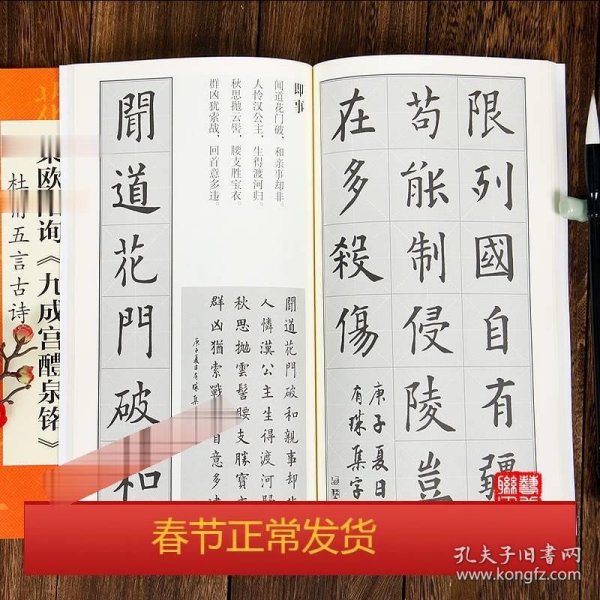 杜甫五言古诗
集欧阳询《九成宫醴泉铭》
聞道花門破和
即事
闻道花门破，和亲事却非。
人怜汉公主，生得渡河归。
秋思抛云髻，腰支胜宝衣。
群凶犹索战，回首意多违。
聞道花門破和親事却
人憐漢公主生得渡河歸
秋思拋雲髻腰支勝寶
群凶猶索戰首意多
庚子夏日有珠集
限列國自有疆
苟能制侵陵豈
在多殺傷
庚子夏日
有珠集字
春节正常发货
孔夫子旧书网
www.kongfz.com